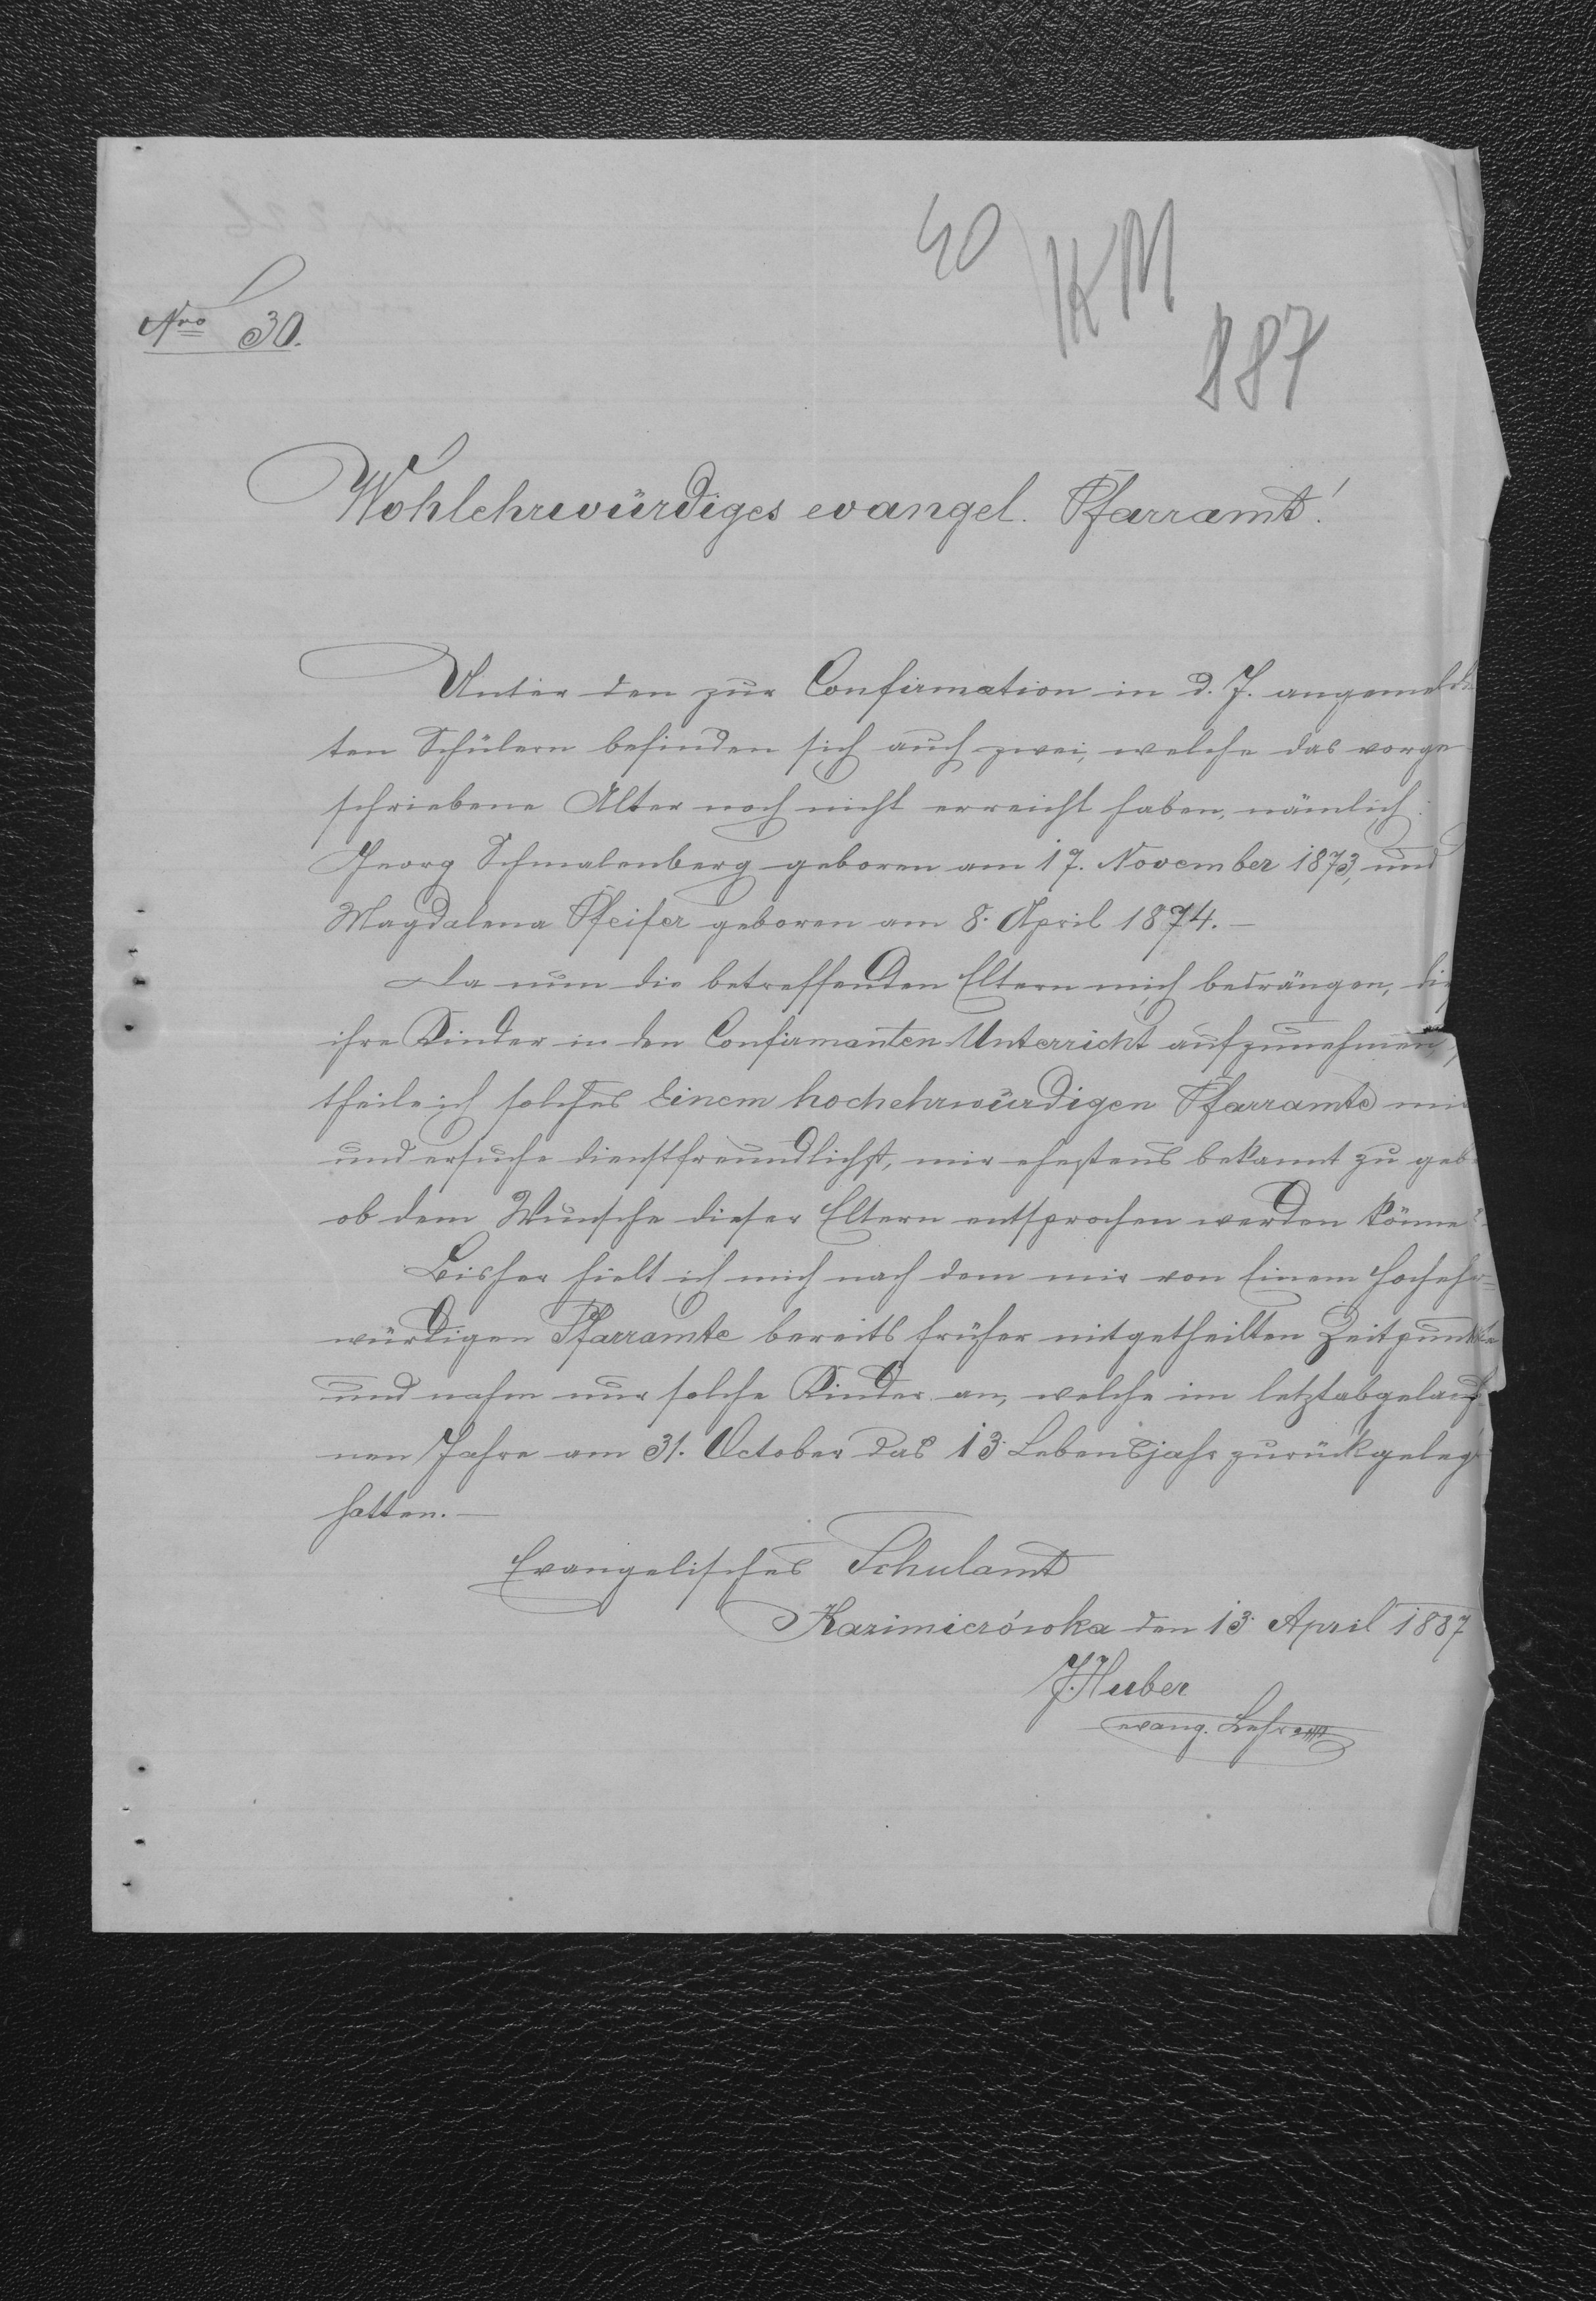 40
KM
887
Nro 30.
Wohlehrwürdiges evangel. Pfarramt!
Unter den zur Confirmation in d. J. angemelde
ten Schülern befinden sich auch zwei, welche das vorge
schriebene Alter noch nicht erreicht haben, nämlich:
Georg Schmalenberg geboren am 17. November 1873, und
Magdalena Pfeifer geboren am 8. April 1874. –
Da nun die betreffenden Eltern mich bedrängen, die
ihre Kinder in den Confirmanten Unterricht aufzunehmen,
theile ich solches Einem hochehrwürdigen Pfarramte mit
und ersuche dienstfreundlichst, mir ehestens bekannt zu geb
ob dem Wunsche dieser Eltern entsprochen werden könne
Bisher hielt ich mich nach dem mir von Einem hochehr=
würdigen Pfarramte bereits früher mitgetheilten Zeitpunkte
und nahm nur solche Kinder an, welche im letztabgelauf
nen Jahre am 31. October das 13. Lebensjahr zurückgelegt
hatten. –
Evangelisches Schulamt
Kazimierówka den 13. April 1887
J. Huber
evang. Lehrer